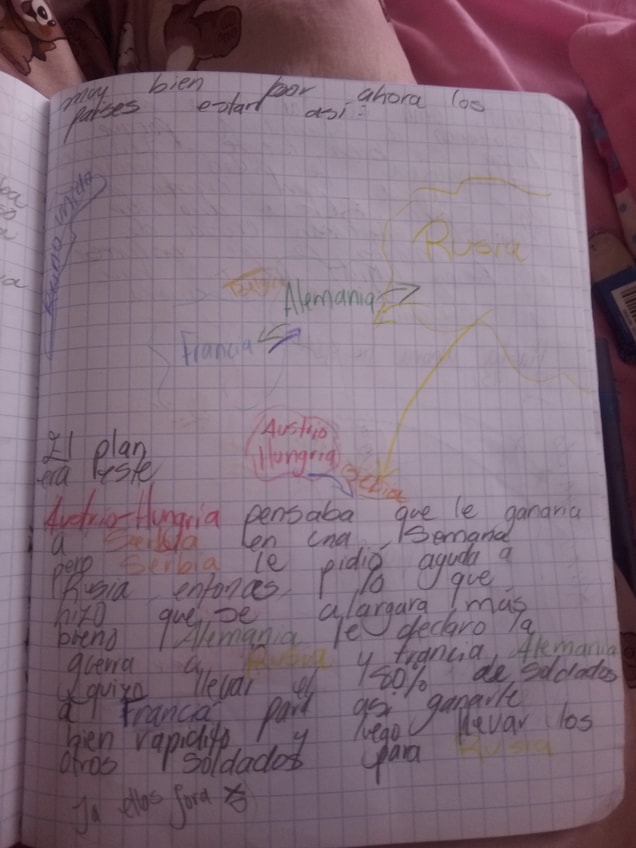 muy bien por ahora los
paises estan así:
Reino Unido
Rusia
Alemania
Francia
Austrio
Hungria
Serbia
El plan
era este
Austrio-Hungria pensaba que le ganaria
a Serbia en una semana
pero Serbia le pidio aguda a
Rusia entonces lo que
hizo que se alargara más
bieno Alemania le declaro la
guerra a Rusia y francia, Alemania
quizo llevar el 80% de soldados
a Francia para así ganarle
bien rapidito y luego llevar los
otros soldados para Rusia
Ja ellos fora